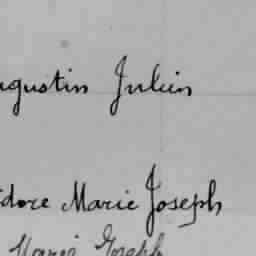 ugustin Julien
dore Marie Joseph
Marie Joseph